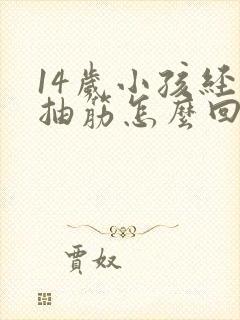 14歲小孩經
抽筋怎麼回
賈奴